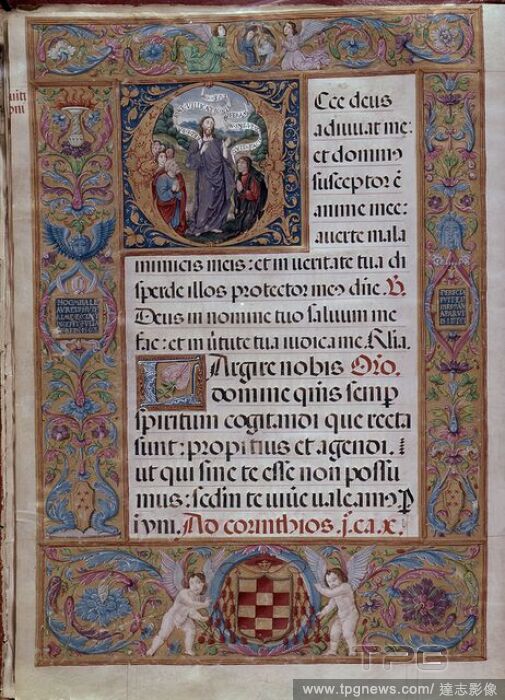 Cce deus
adiuuat me:
et domin9
susceptor ē
anime mee:
auerte mala
inimicis meis: et in ueritate tua di
sperde illos protector me9 dñe. ℟.
Deus in nomine tuo saluum me
fac: et in ũtute tua iudica me. Alia.
Largire nobis Oro.
domine q̃s semp
spiritum cogitandi que recta
sunt: propitius et agendi.
ut qui sine te esse non possu
mus: sedm te uiuē ualeam9 P
Ad corinthios. j. ca. x.
TPG
www.tpgnews.com / 達志影像